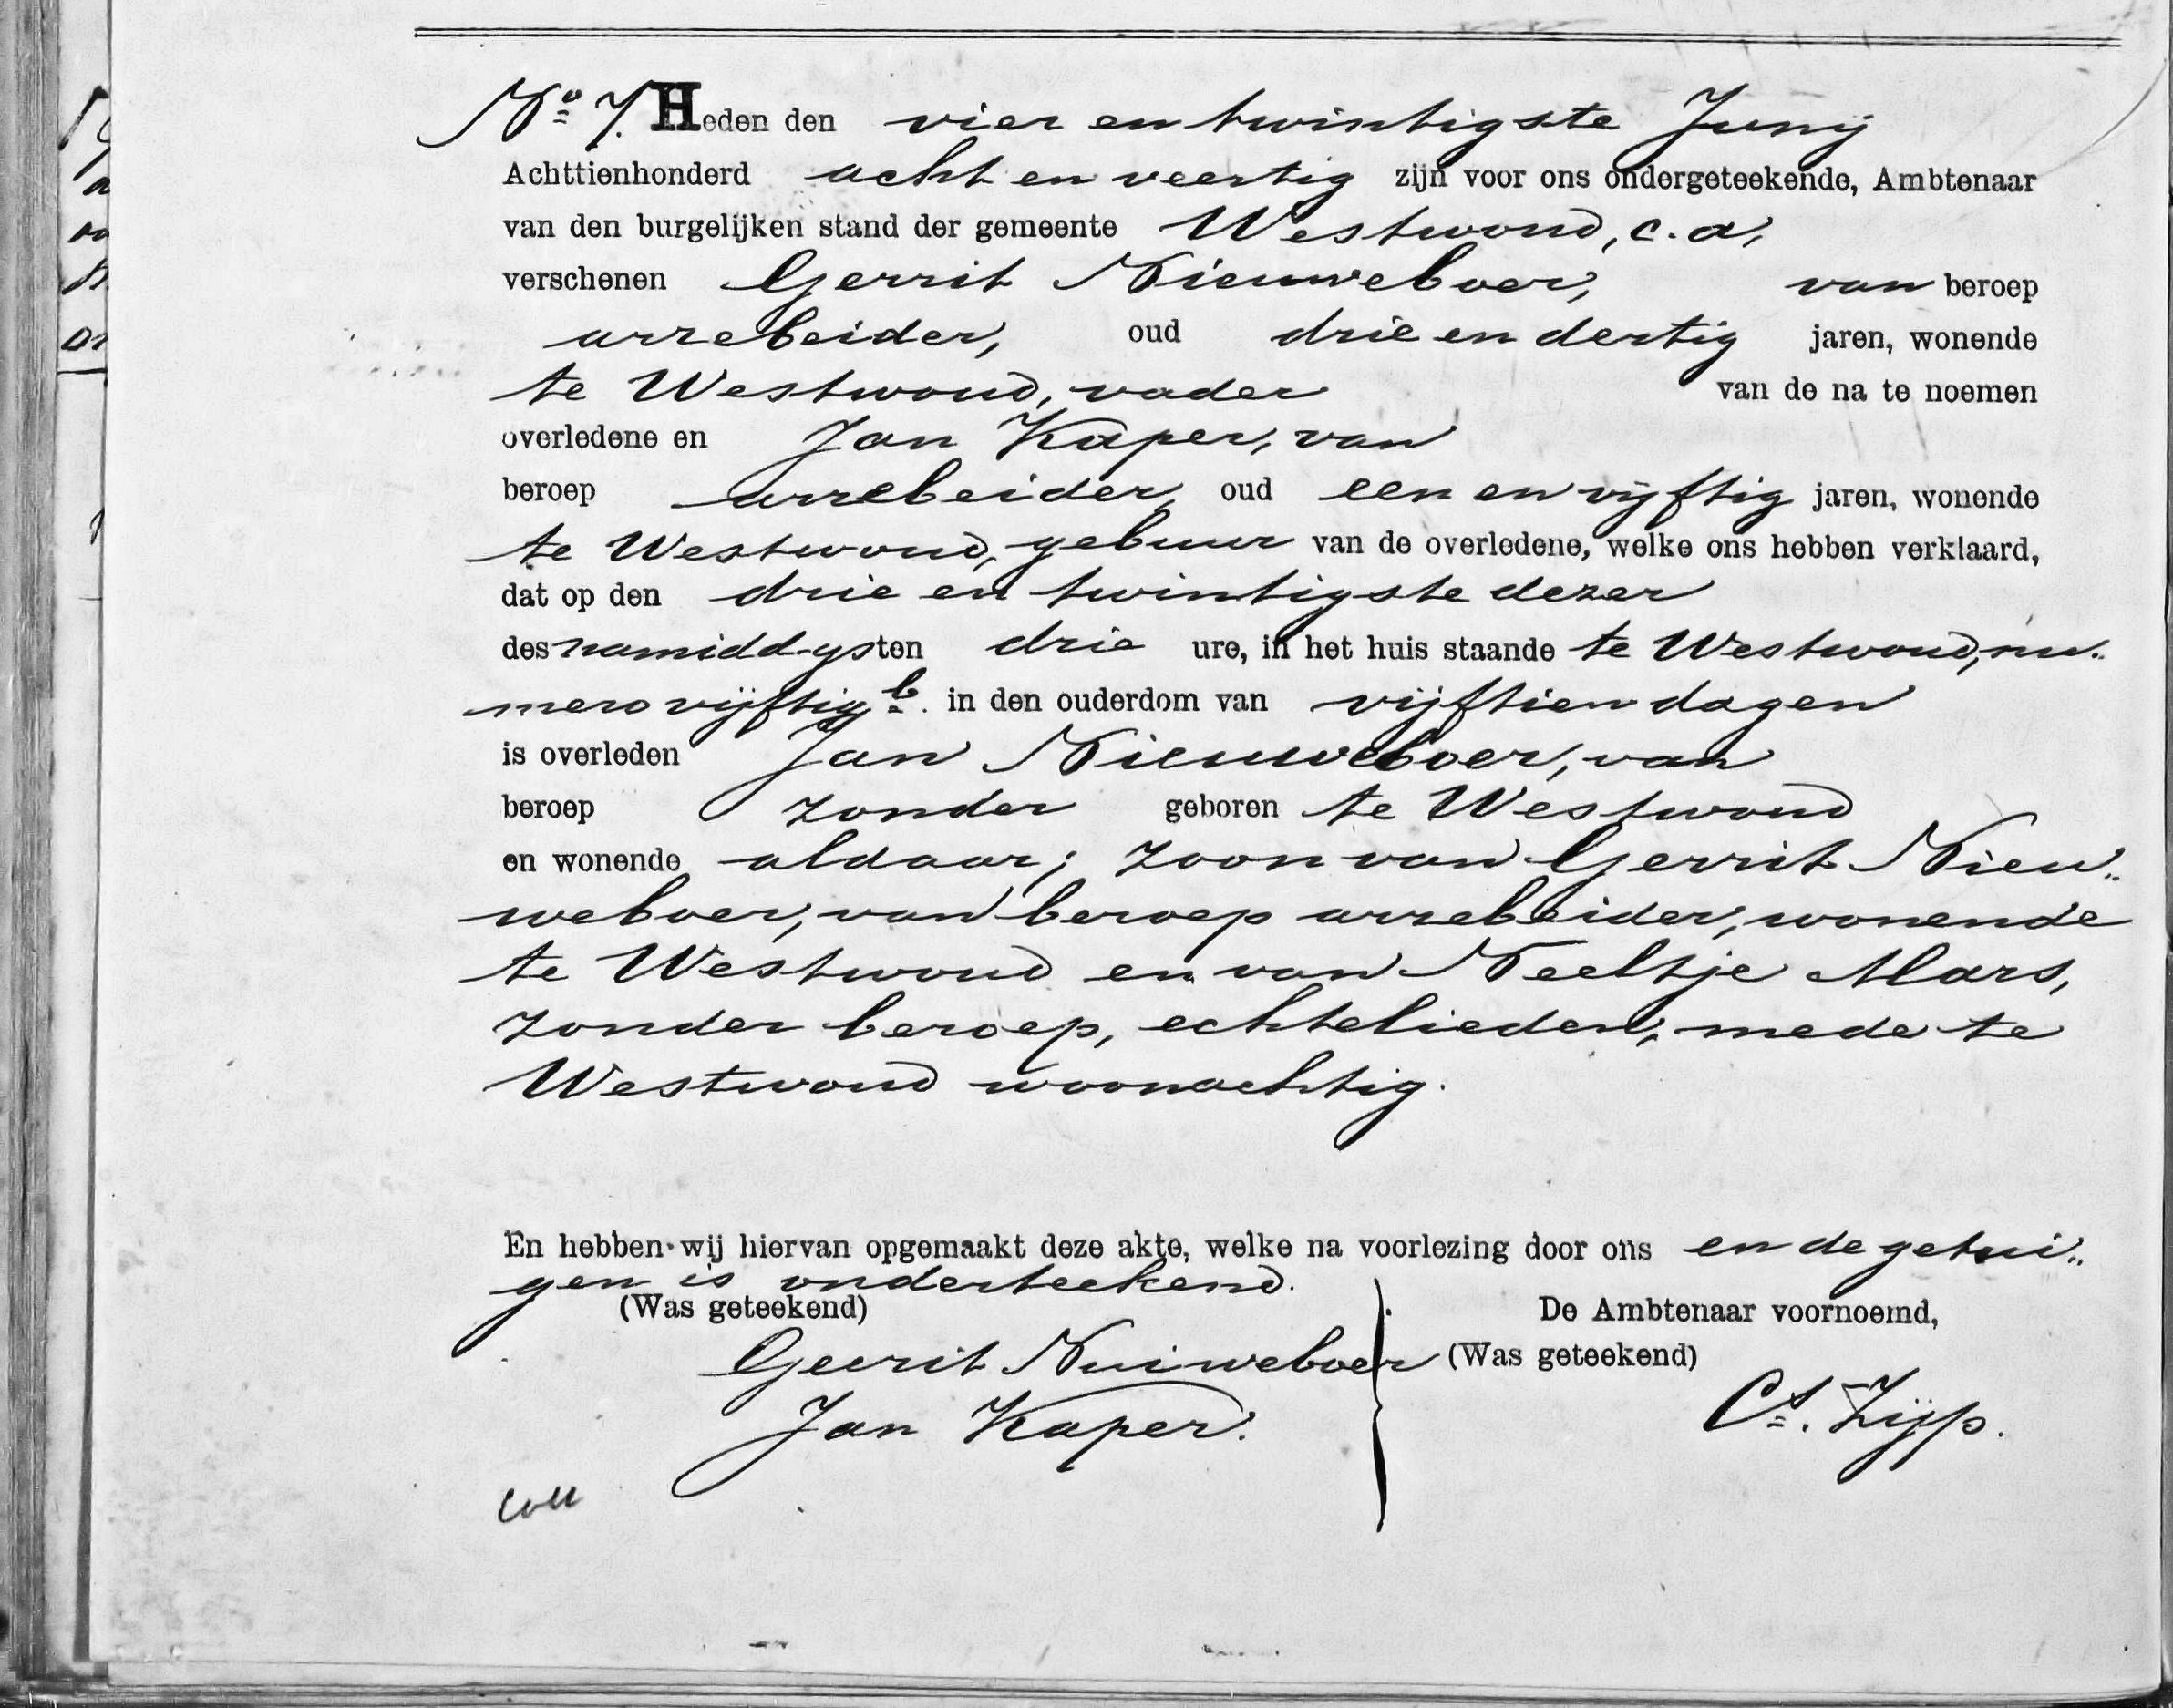 No 7. Heden den vier en twintigste Junij
Achttienhonderd acht en veertig zijn voor ons ondergeteekende, Ambtenaar
van den burgelijken stand der gemeente Westwoud, c. a,
verschenen Gerrit Nieuweboer, van beroep
arrebeider, oud drie en dertig jaren, wonende
te Westwoud, vader van de na te noemen
overledene en Jan Kaper, van
beroep arrebeider, oud een en vijftig jaren, wonende
te Westwoud, gebuur van de overledene, welke ons hebben verklaard,
dat op den drie en twintigste dezer
des namiddagsten drie ure, in het huis staande te Westwoud, nu„
mero vijftig b. in den ouderdom van vijftien dagen
is overleden Jan Nieuweboer, van
beroep zonder geboren te Westwoud
en wonende aldaar; zoon van Gerrit Nieu„
weboer, van beroep arrebeider, wonende
te Westwoud en van Neeltje Mars,
zonder beroep, echtelieden, mede te
Westwoud woonachtig.
En hebben wij hiervan opgemaakt deze akte, welke na voorlezing door ons en de getui„
gen is onderteekend.
(Was geteekend) De Ambtenaar voornoemd,
Geerit Nuiweboer (Was geteekend)
Jan Kaper. Cs. Zijp.
Coll